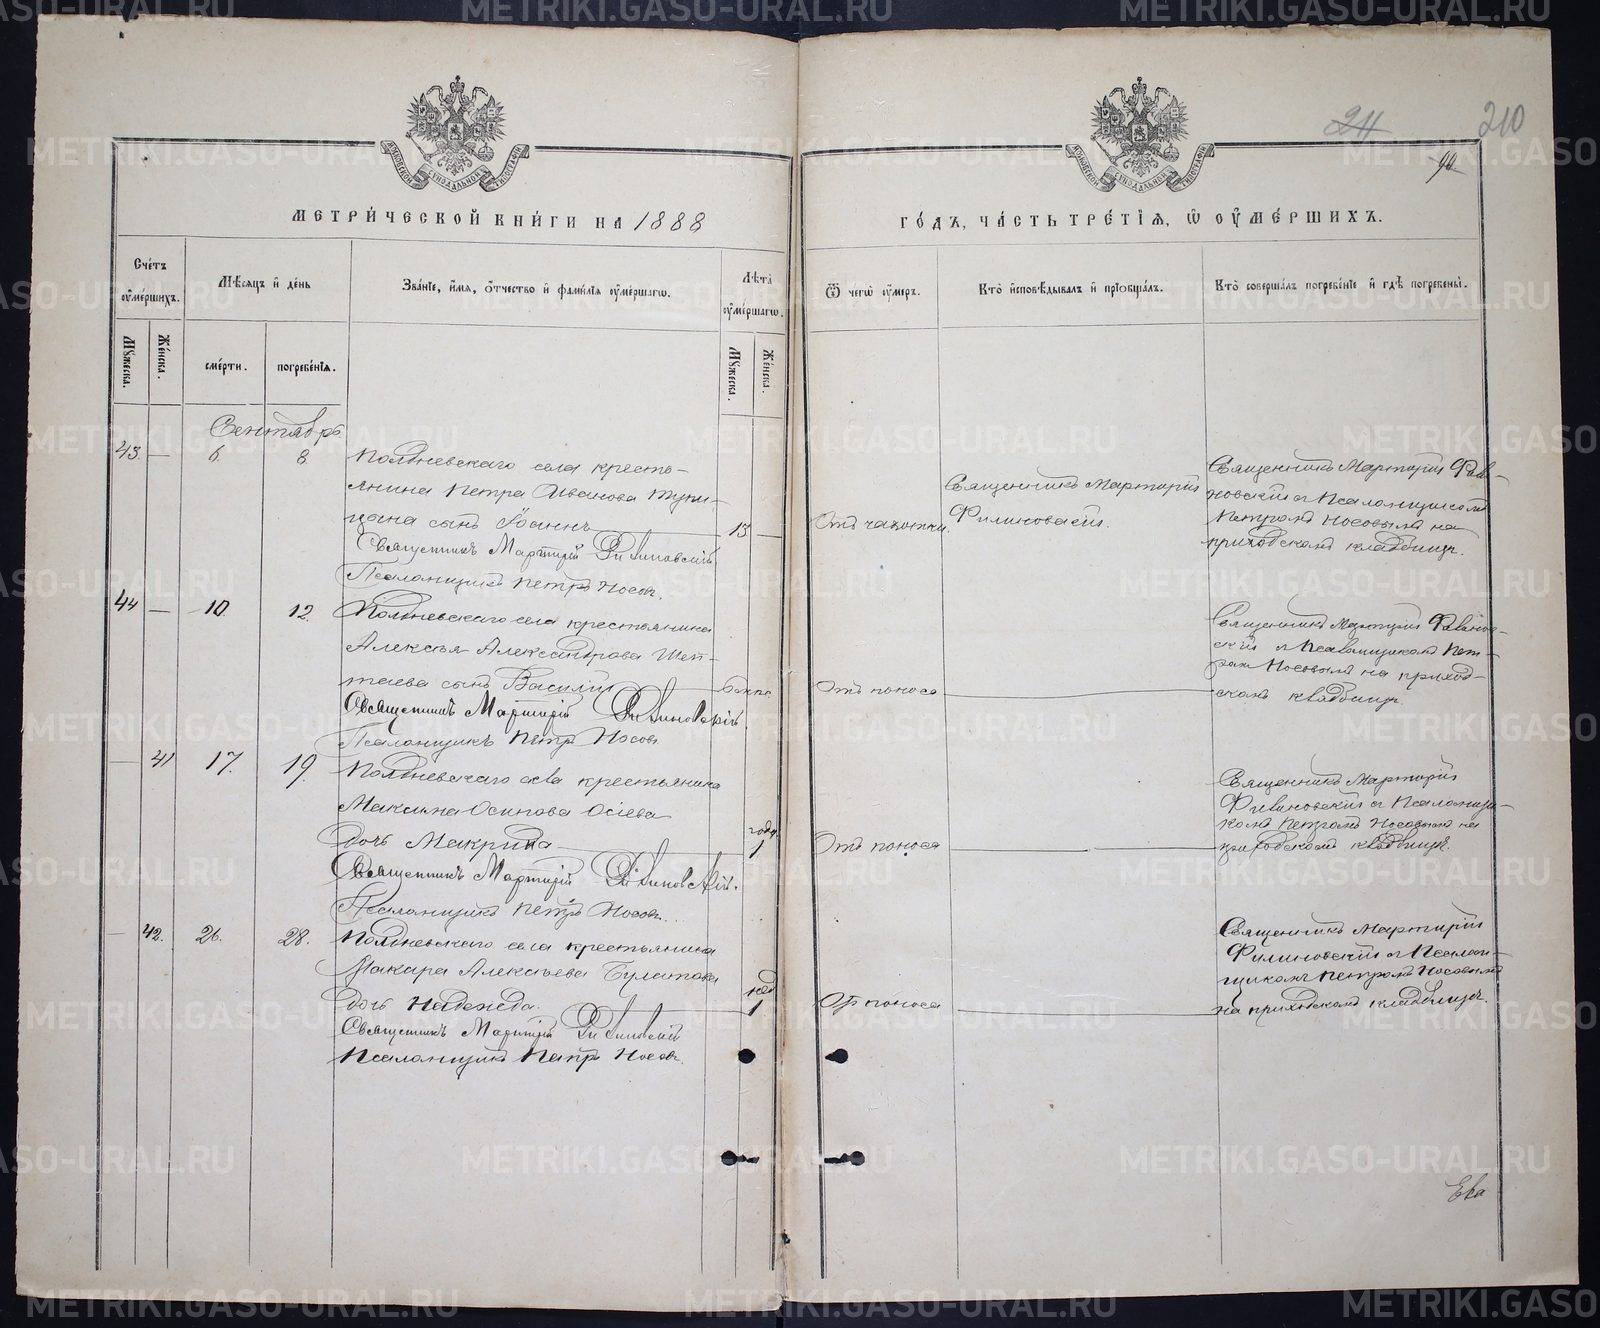 210
МЕТРИ́ЧЕСКОЙ КНИ́ГИ НА 1888
ГО́ДЪ, ЧА́СТЬ ТРЕ́ТІЯ, Ѿ ОУ҆МЕ́РШИХЪ.
Сче́тъ оу҆ме́ршихъ.
Мѣ́сяцъ и҆ де́нь
Зва́нїе, и҆́мя, ѻ҆́тчество и҆ фами́лїя оу҆ме́ршагѡ.
Лѣ́та оу҆ме́ршагѡ.
Ѿ чегѡ̀ оу҆́меръ.
Кто̀ и҆сповѣ́дывалъ и҆ прїѻбща́лъ.
Кто̀ соверша́лъ погребе́нїе и҆ гдѣ̀ погребены̀.
Мꙋ́жеска.
Же́нска.
сме́рти.
погребе́нїѧ.
Мꙋ́жеска.
Же́нска.
Сентябрь
43. — 6. 8.
Полдневскаго села кресть-
янина Петра Иванова Тупи-
цына сынъ Іоаннъ 13 —
Священникъ Мартирій Филиновскій
Псаломщикъ Петръ Носовъ.
Отъ чахотки.
Священникъ Мартирій
Филиновскій.
Священникъ Мартирій Фили-
новскій съ Псаломщикомъ
Петромъ Носовымъ на
приходскомъ кладбищѣ.
44 — 10. 12.
Полдневскаго села крестьянина
Алексѣя Александрова Шеп-
таева сынъ Василій
Священникъ Мартирій Филиновскій.
Псаломщикъ Петръ Носовъ
Отъ поноса
Священникъ Мартирій Филинов-
скій съ Псаломщикомъ Пет-
ромъ Носовымъ на приход-
скомъ кладбищѣ.
— 41 17. 19.
Полдневскаго села крестьянина
Максима Осипова Осіева
дочь Макрина
года
1
Священникъ Мартирій Филиновскій.
Псаломщикъ Петръ Носовъ.
Отъ поноса
Священникъ Мартирій
Филиновскій съ Псаломщи-
комъ Петромъ Носовымъ на
приходскомъ кладбищѣ.
— 42. 26. 28.
Полдневскаго села крестьянина
Макара Алексѣева Булатова
дочь Надежда.
нед
1
Священникъ Мартирій Филиновскій
Псаломщикъ Петръ Носовъ.
От поноса
Священникъ Мартирій
Филиновскій съ Псалом-
щикомъ Петромъ Носовымъ
на приходскомъ кладбищѣ.
METRIKI.GASO-URAL.RU